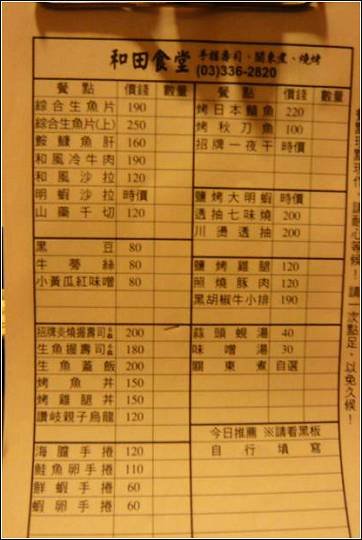 和田食堂 手握壽司、關東煮、燒烤
(03)336-2820
餐點 價錢 數量
綜合生魚片 190
綜合生魚片(上) 250
鮟鱇魚肝 160
和風冷牛肉 190
和風沙拉 120
明蝦沙拉 時價
山藥千切 120
黑豆 80
牛蒡絲 80
小黃瓜紅味噌 80
招牌炎燒握壽司 200
生魚握壽司 180
生魚蓋飯 200
烤魚丼 150
烤雞腿丼 150
讚岐親子烏龍 120
海膽手捲 120
鮭魚卵手捲 110
鮮蝦手捲 60
蝦卵手捲 60
餐點 價錢 數量
烤日本鯖魚 220
烤秋刀魚 100
招牌一夜干 時價
鹽烤大明蝦 時價
透抽七味燒 200
川燙透抽 200
鹽烤雞腿 120
照燒豚肉 120
黑胡椒牛小排 190
蒜頭蜆湯 40
味噌湯 30
關東煮 自選
今日推薦 ※請看黑板
自行填寫
請耐心等候!請一次點足,以免久候!